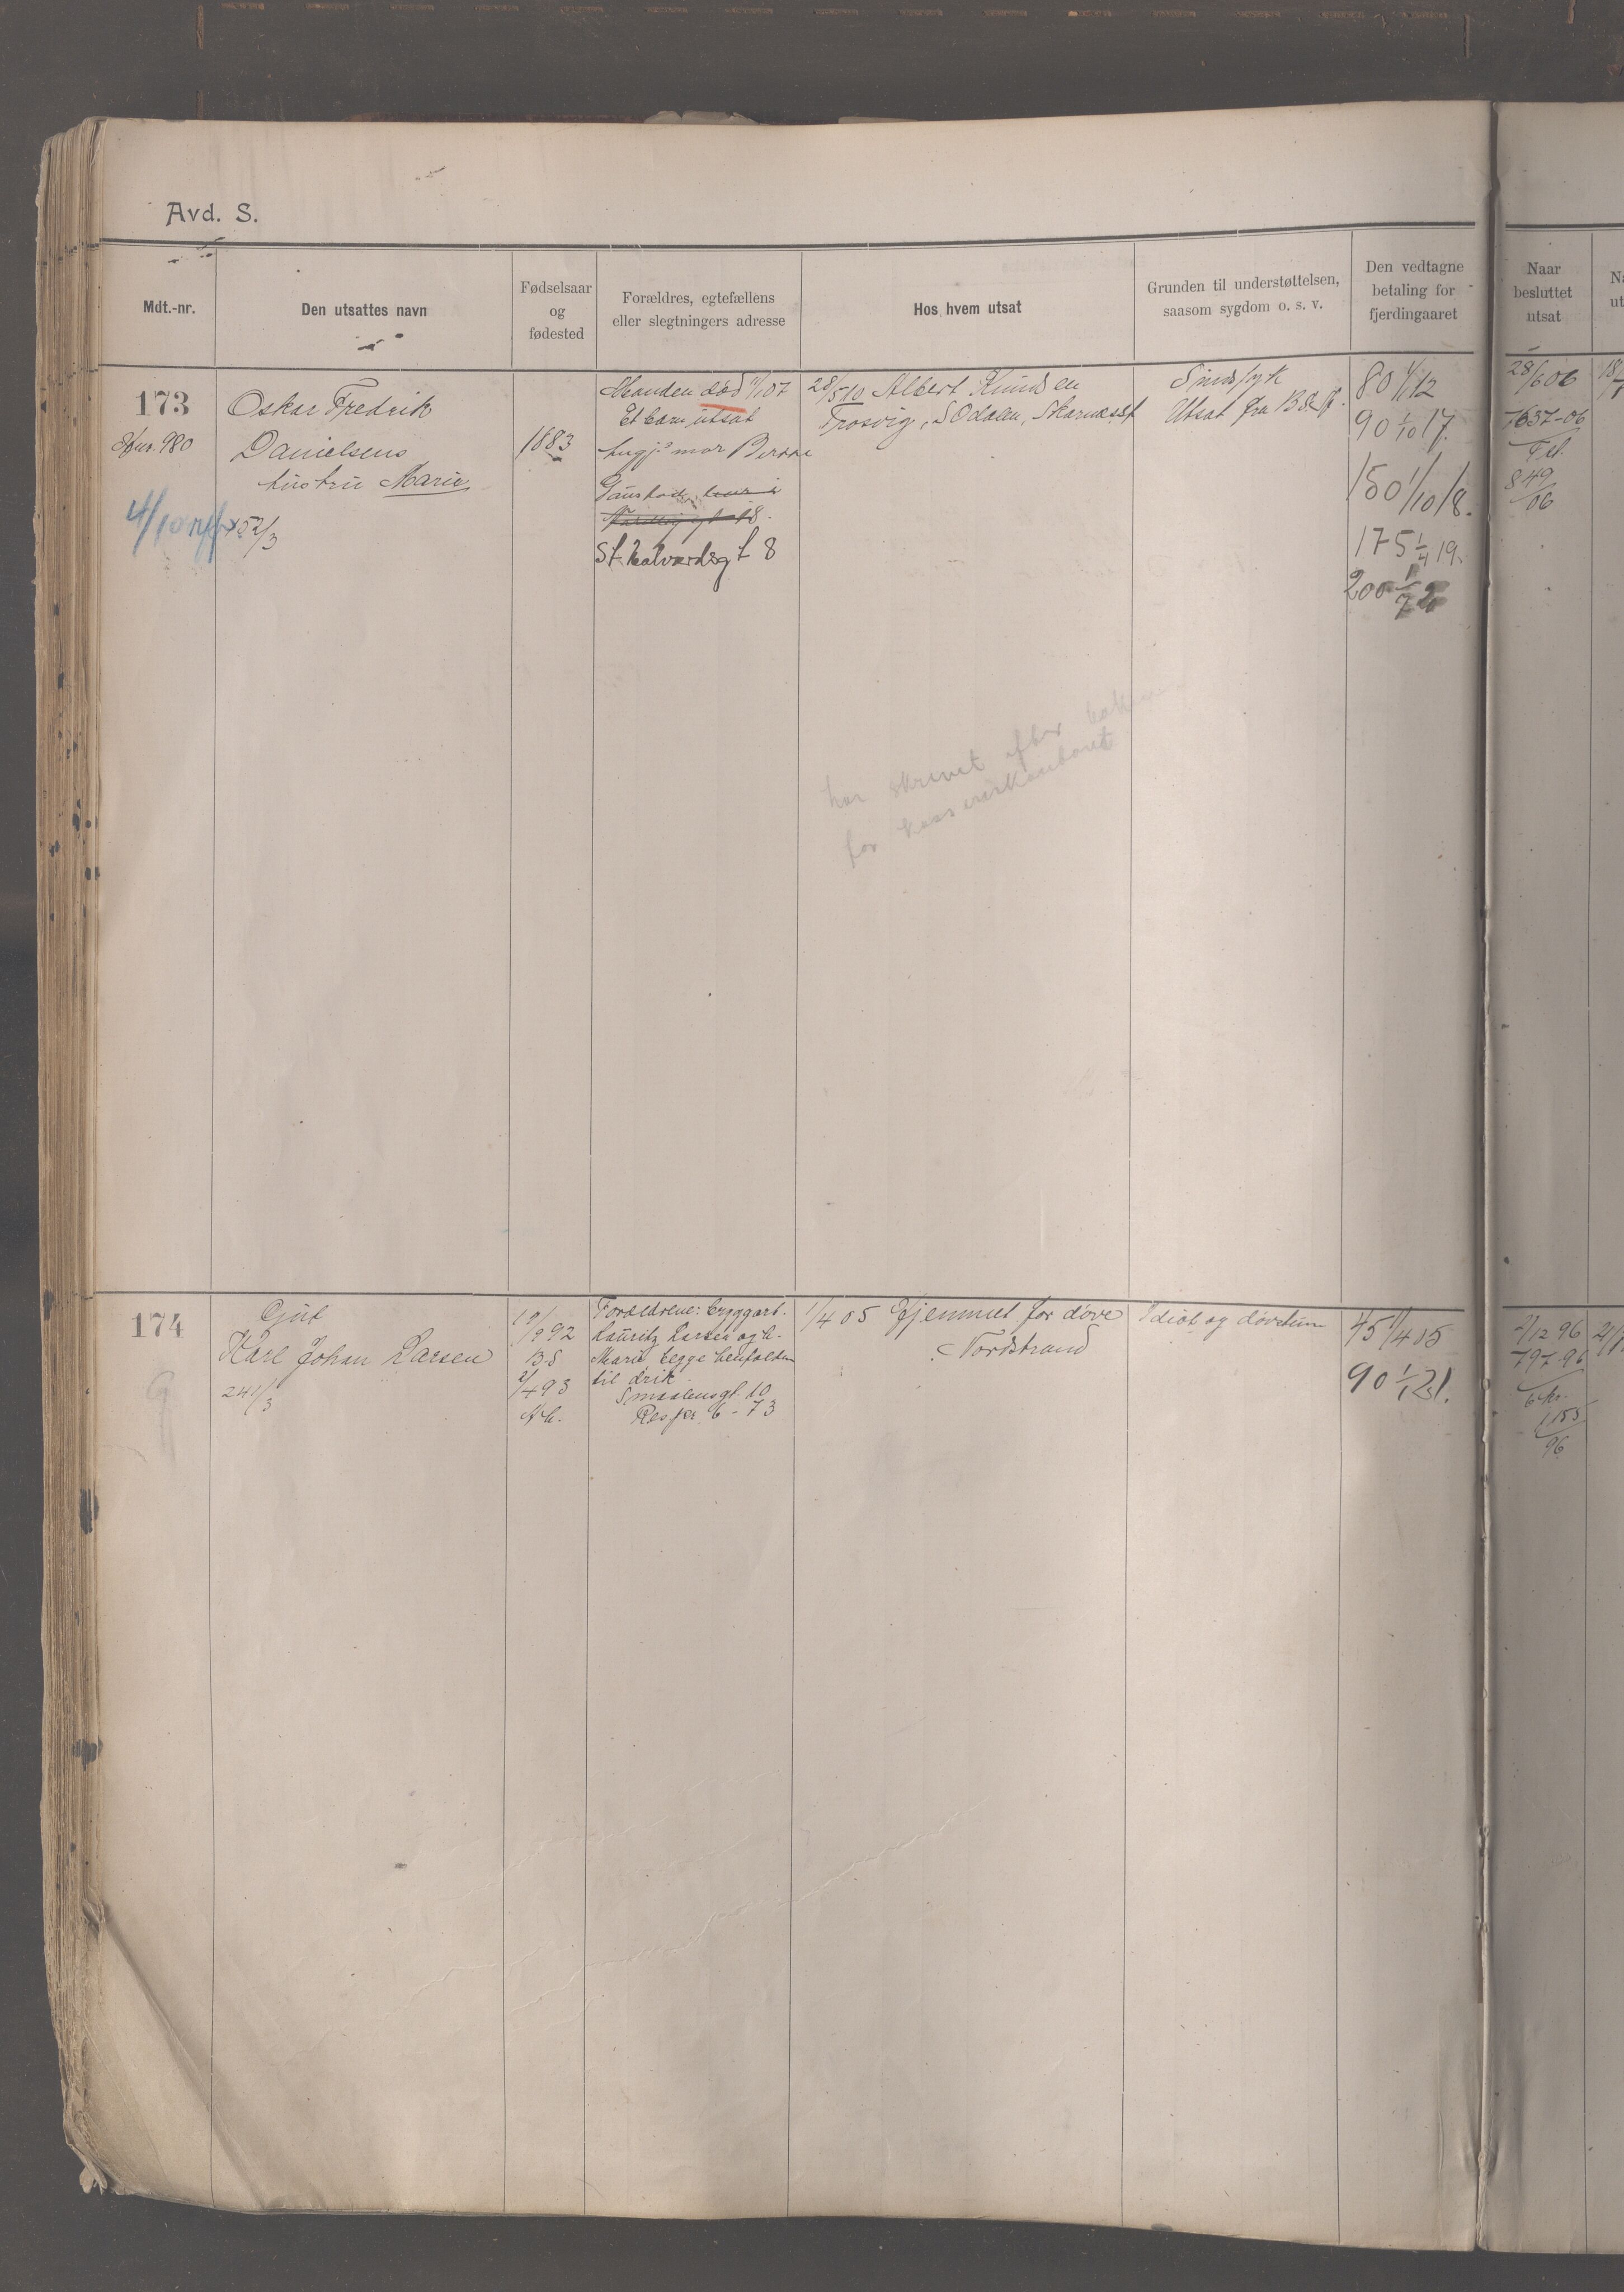 Avd. S.
Mdt.-nr.
Den utsattes navn
Fødselsaar
og
fødested
Forældres, egtefællens
eller slegtningers adresse
Hos hvem utsat
Grunden til understøttelsen,
saasom sygdom o. s. v.
Den vedtagne
betaling for
fjerdingaaret
Naar
besluttet
utsat
173
980
4/10
Oskar Fredrik
Danielsens
hustru Marie
52/3
1883
Manden død 07
Et barn utsat
mor
St. halvardsgt 8
28/5 10 Albert Knudsen
Trosvig, S Odalen, Skarnes st
Sindssyk
Utsat fra
80 1/1 12
90 1/10 17.
150 1/10 18.
175 1/4 19.
200 1/7 2
28/6 06
637-06
849
06
har skrevet efter
for
174
Gut
Karl Johan Larsen
241/3
19/9 92
B.S
2/4 93
Forældrene: byggarb.
Lauritz Larsen og h.
Marie, begge henfaldne
til drik
Smaalensgt. 10
6 - 73
1/4 05 Hjemmet for døve
Nordstrand
Idiot og døvstum
45 1/4 05
90 1/1 21.
2/12 96
797-96
1155
96